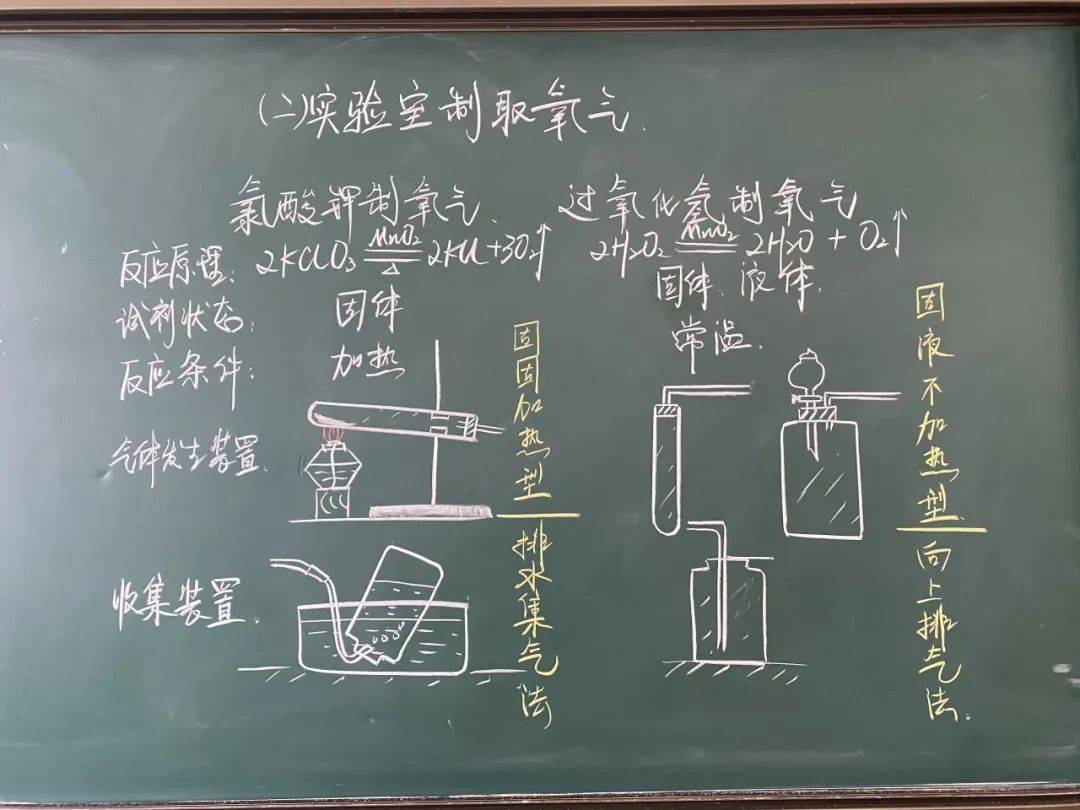 (二)实验室制取氧气.
氯酸钾制氧气.
过氧化氢制氧气
反应原理:
2KClO₃ MnO₂ △ 2KCl+3O₂↑
2H₂O₂ MnO₂ 2H₂O + O₂↑
试剂状态:
固体
固体、液体.
反应条件:
加热
常温.
气体发生装置.
固固加热型
固液不加热型
收集装置.
排水集气法
向上排气法.